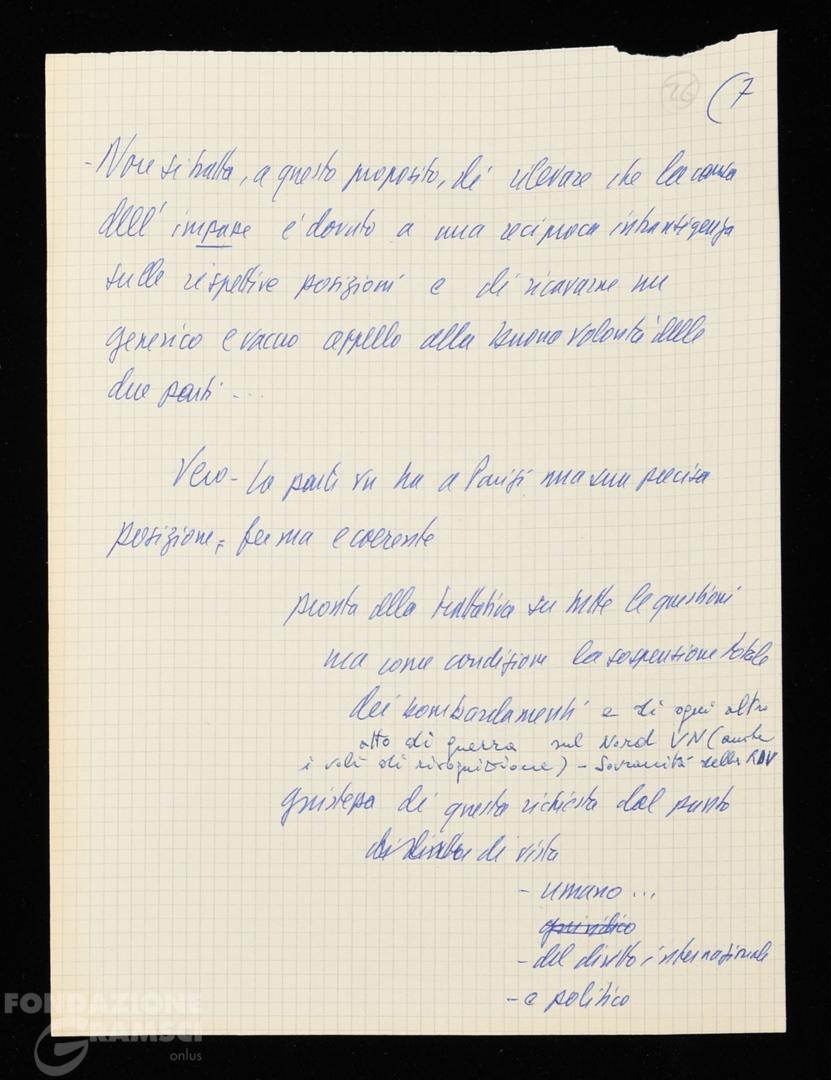 26 (7
- Non si tratta, a questo proposito, di rilevare che la causa
dell'impasse è dovuto a una reciproca intransigenza
sulle rispettive posizioni e di ricavarne un
generico e vacuo appello alla buona volontà delle
due parti ...
Vero - la parte vn ha a Parigi una sua precisa
posizione, ferma e coerente
pronta alla trattativa su tutte le questioni
ma come condizione la sospensione totale
dei bombardamenti e di ogni altro
atto di guerra sul Nord VN (anche
i voli di ricognizione) - Sovranità della RDV
giustezza di questa richiesta dal punto
di vista
- umano ...
giuridico
- del diritto internazionale
- e politico
FONDAZIONE
GRAMSCI
onlus